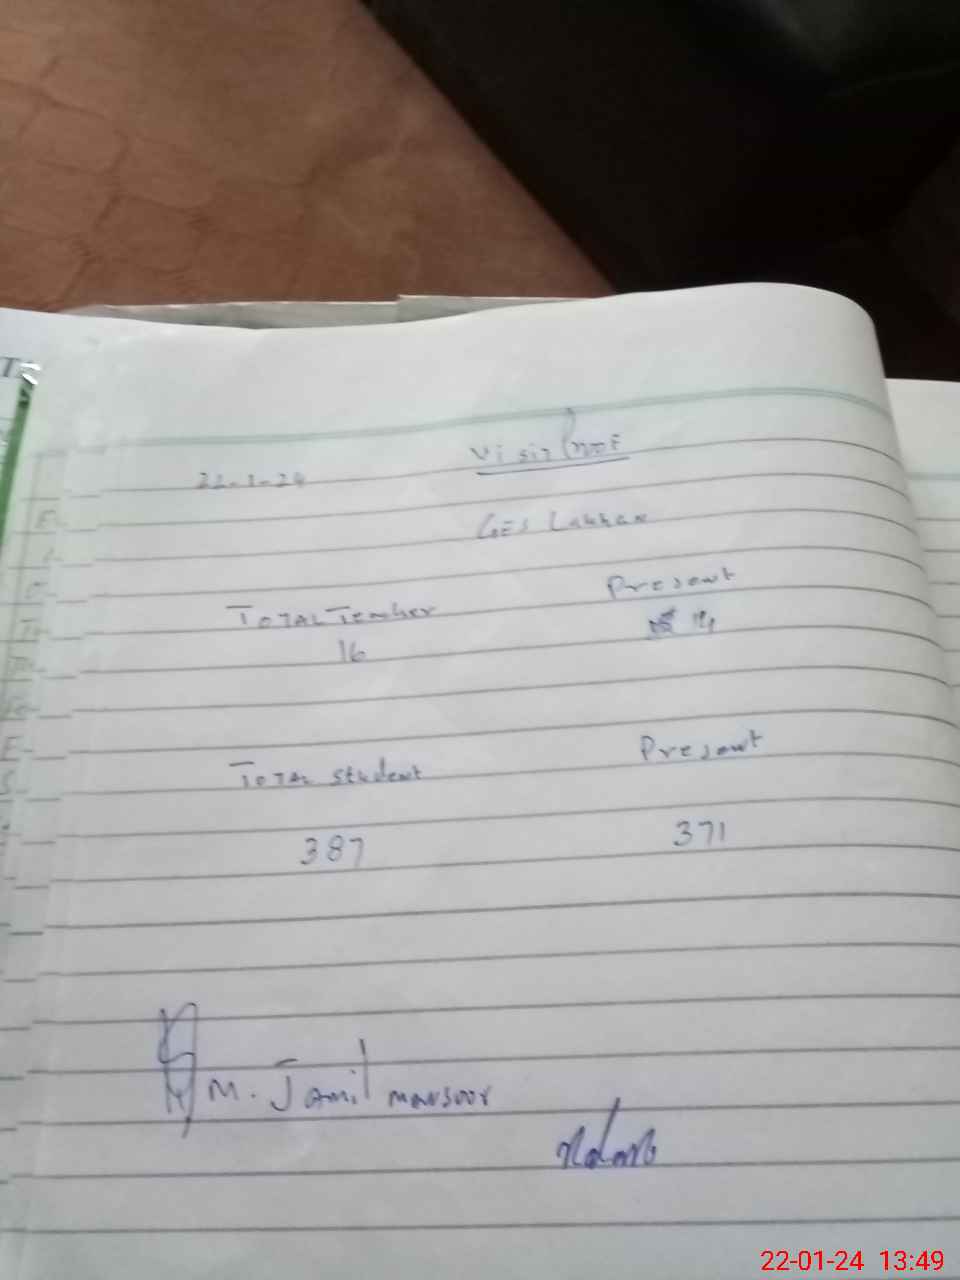 22-1-24
Visit Proof
GES Lakhan
TOTAL Teacher
Present
16
14
TOTAL Student
Present
387
371
M. Jamil mansoor
22-01-24 13:49